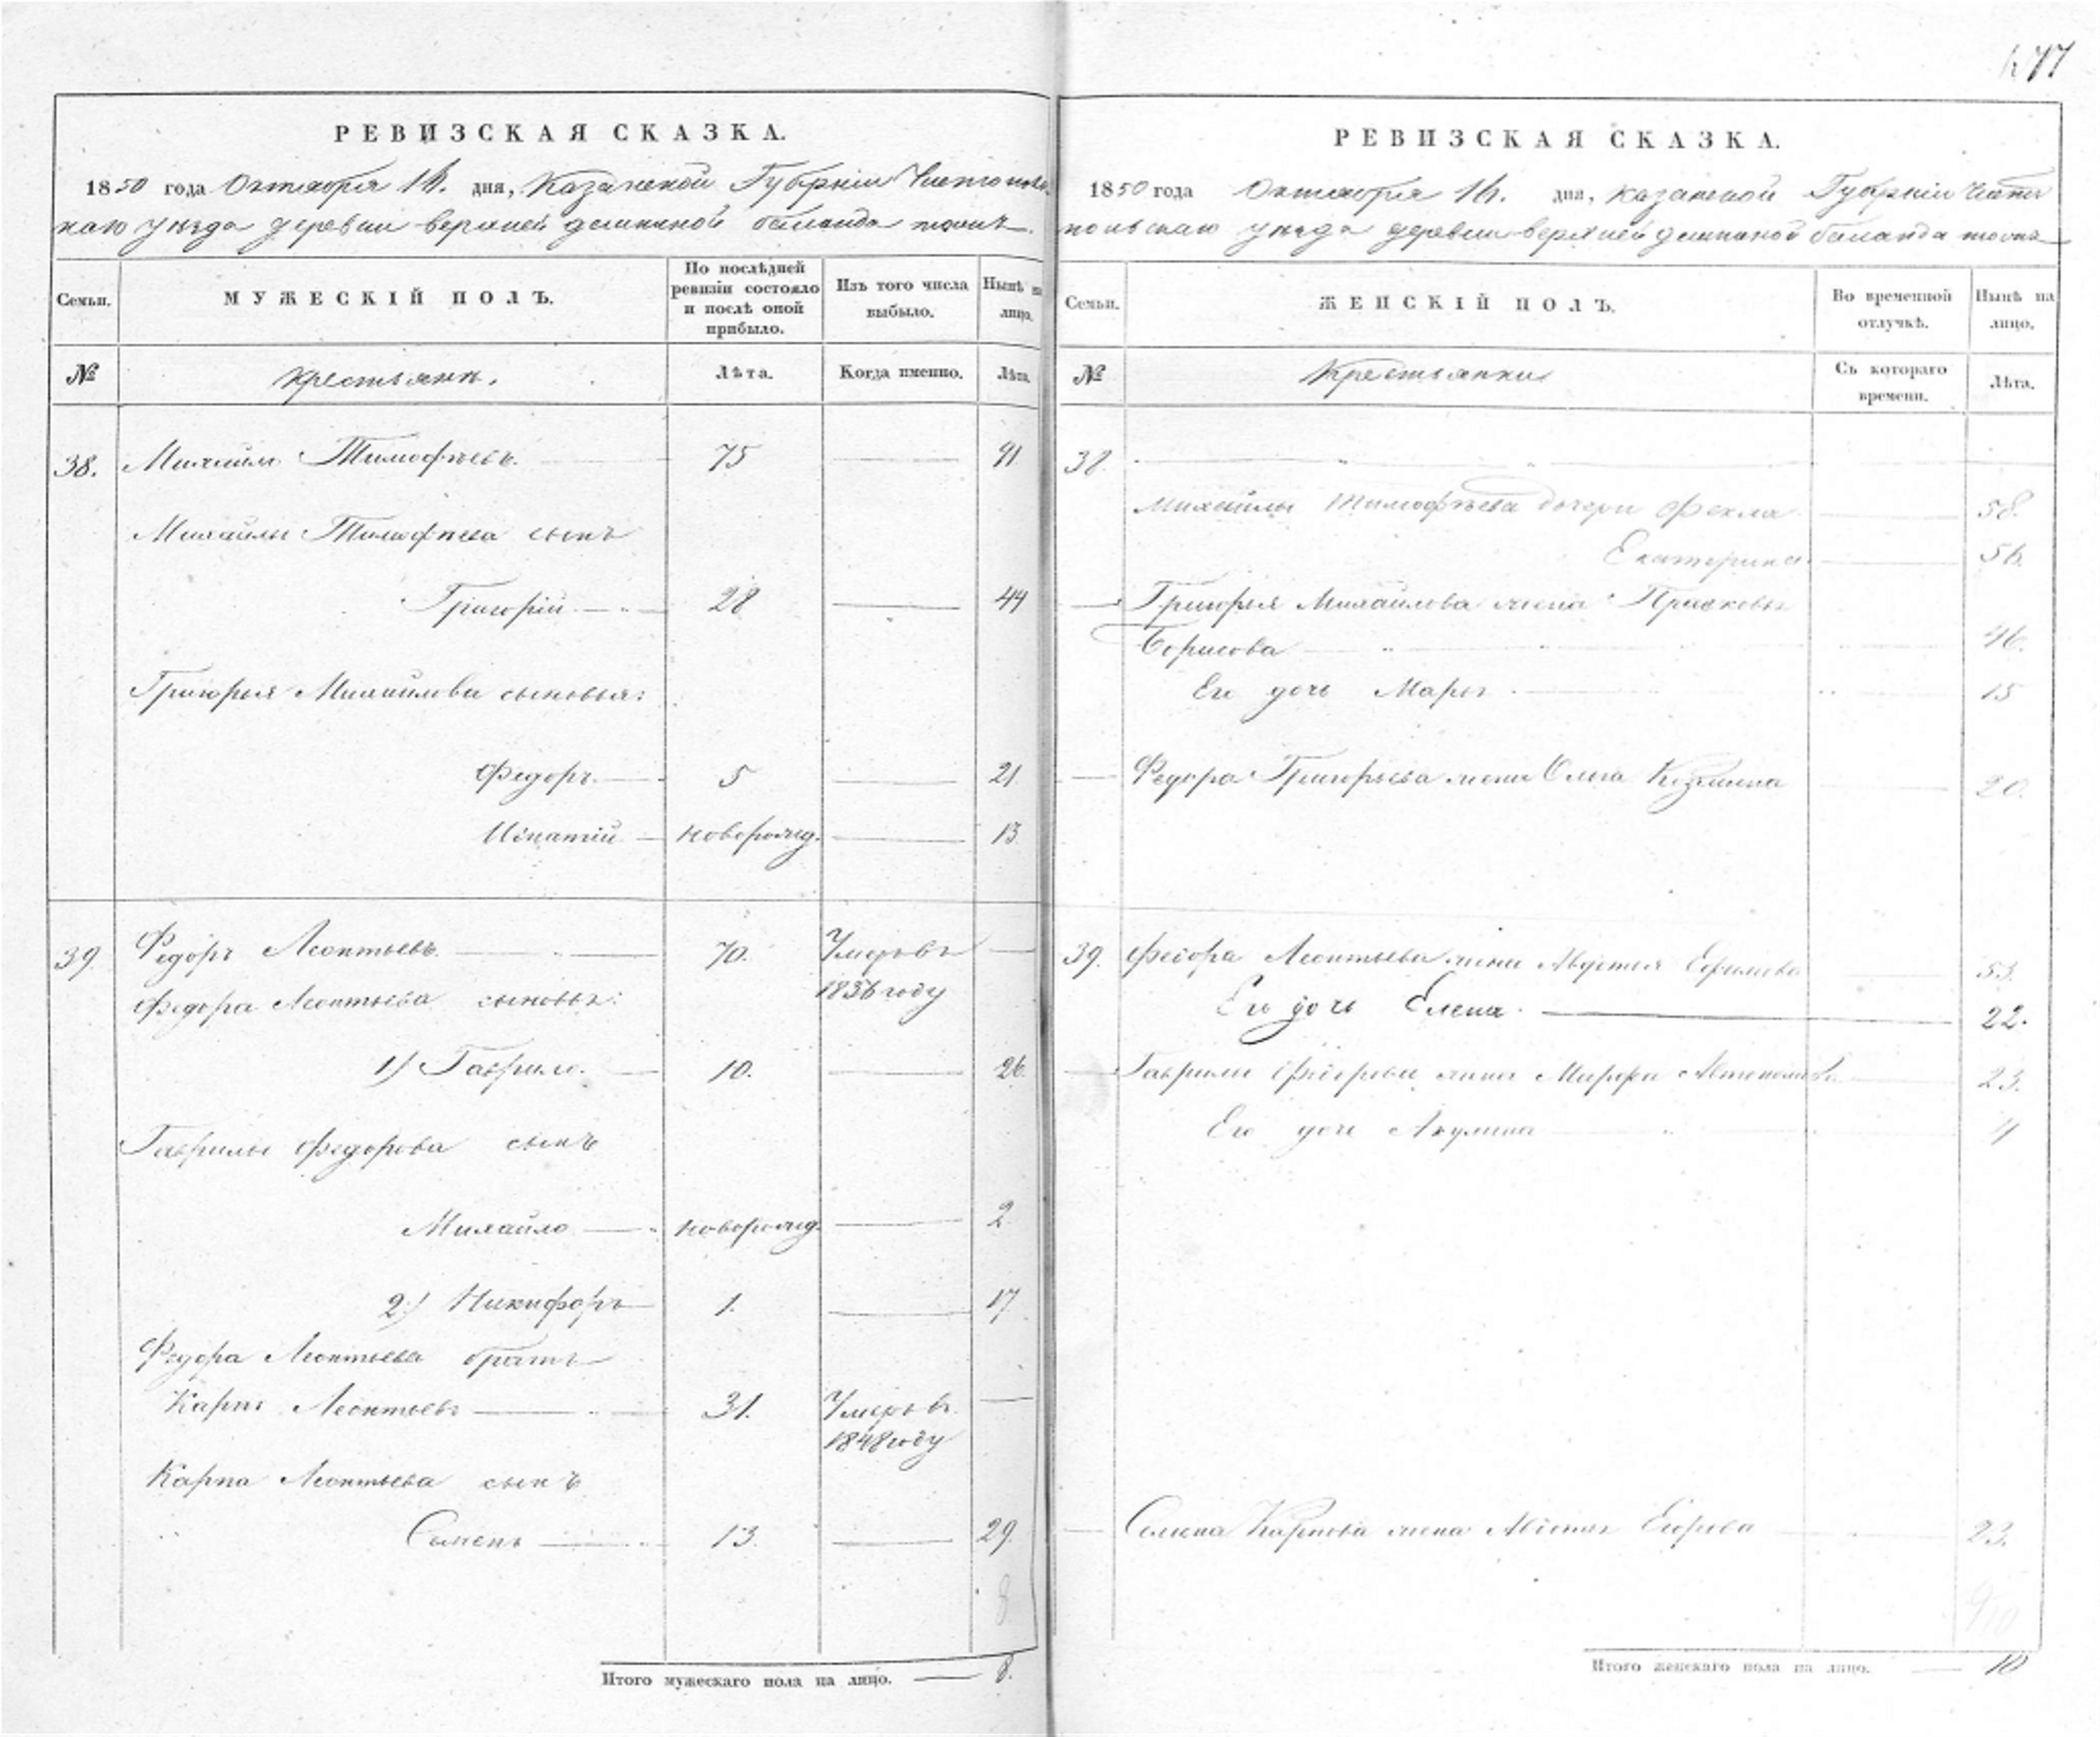 477
РЕВИЗСКАЯ СКАЗКА.
1850 года Октября 16. дня, Казанской Губернiи Чистополь
скаго уѣзда деревни верхней
Семьи.
МУЖЕСКIЙ ПОЛЪ.
По послѣдней ревизiи состояло и послѣ оной прибыло.
Изъ того числа выбыло.
Нынѣ на лицо.
№
Крестьяне.
Лѣта.
Когда именно.
Лѣта.
38. Михайло Тимофѣевъ. 75 91
Михайлы Тимофѣева сынъ
Григорiй 28 44
Григорья Михайлова сыновья:
Федоръ 5 21
Игнатiй новорожд. 13
39 Федоръ Леонтьевъ 70. Умеръ въ
1836 году
Федора Леонтьева сыновья:
1) Гаврило 10. 26
Гаврилы Федорова сынъ
Михайло новорожд. 2
2) Никифоръ 1. 17
Федора Леонтьева братъ
Карпъ Леонтьевъ 31. Умеръ въ
1848 году
Карпа Леонтьева сынъ
Семенъ 13. 29.
8
Итого мужескаго пола на лицо. 8.
РЕВИЗСКАЯ СКАЗКА.
1850 года Октября 16. дня, Казанской Губернiи Чисто
польскаго уѣзда деревни верхней
Семьи.
ЖЕНСКIЙ ПОЛЪ.
Во временной отлучкѣ.
Нынѣ на лицо.
№
Крестьянки
Съ котораго времени.
Лѣта.
38.
Михайлы Тимофѣева дочери Фекла 58.
Екатерина 56.
Григорья Михайлова жена Прасковья
Борисова 46.
Его дочь Марья 15
Федора Григорьева жена Ольга Козмина 20.
39. Федора Леонтьева жена Авдотья 53.
Его дочь Елена. 22.
Гаврилы Федорова жена Марфа 23.
Его дочь Акулина 4
Семена Карпова жена Егорова 23.
910
Итого женскаго пола на лицо. 10